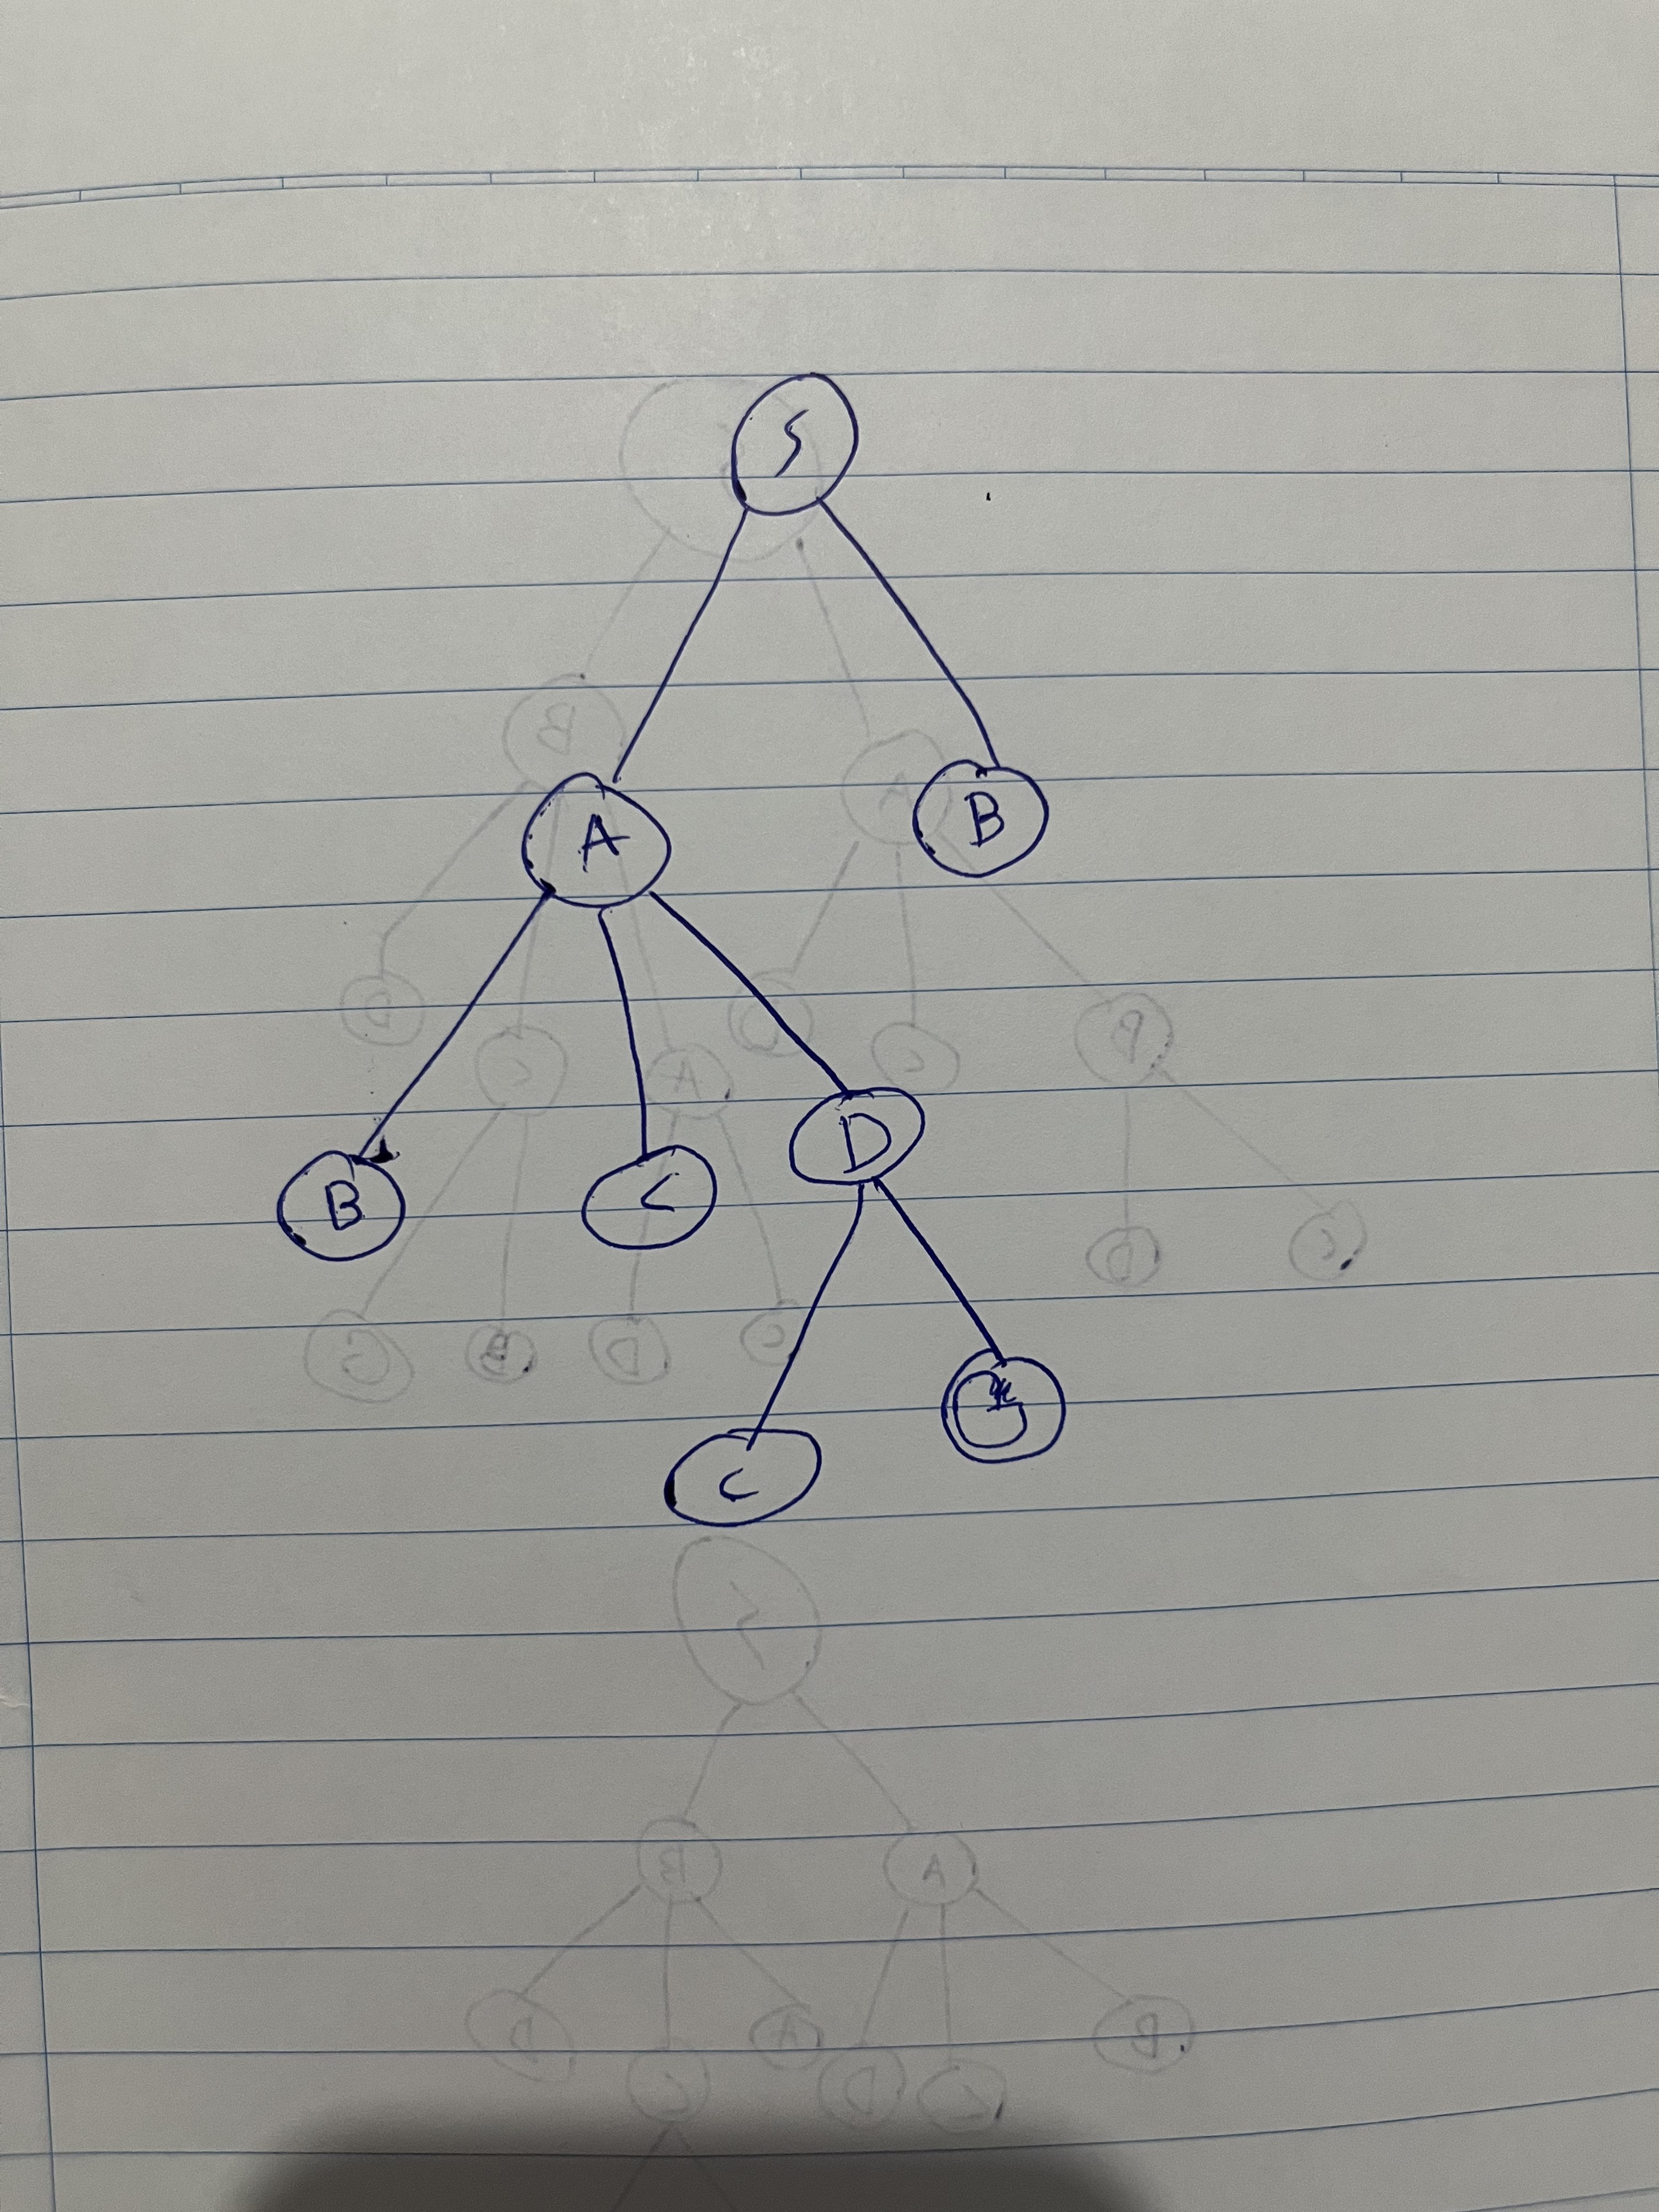 S
A B
B C D
C G